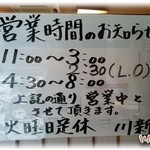 営業時間のお知らせ
11:00～3:00
2:30(L.O)
4:30～8:00
上記の通り営業中と
させて頂きます。
火曜日定休 川新